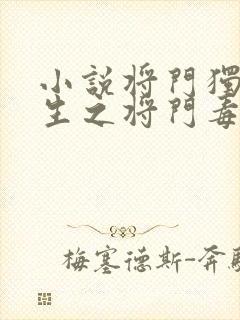 小説将門獨
生之将門毒
梅塞德斯-奔馳